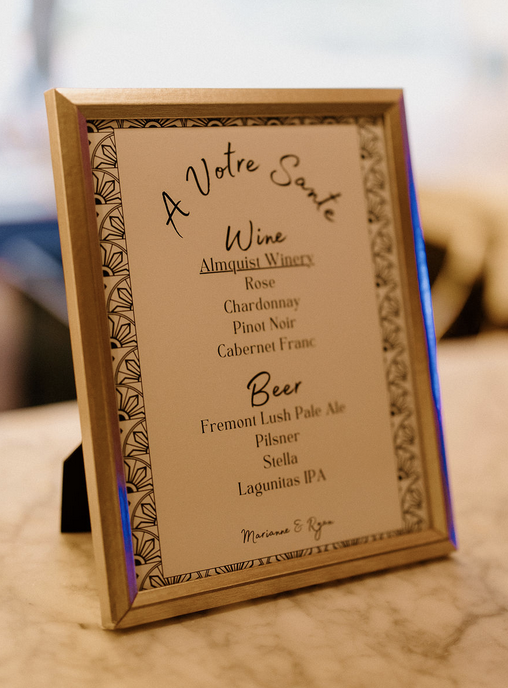 A Votre Sante
Wine
Almquist Winery
Rose
Chardonnay
Pinot Noir
Cabernet Franc
Beer
Fremont Lush Pale Ale
Pilsner
Stella
Lagunitas IPA
Marianne & Ryan